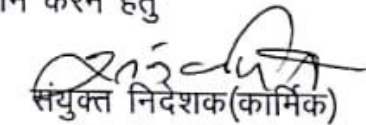 करने हेतु
संयुक्त निदेशक(कार्मिक)